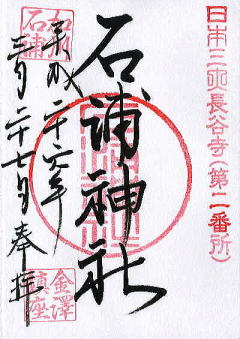 日本三所長谷寺(第二番所)
石浦神社
平成二十六年
三月二十七日奉拝
加州
石浦
金澤
鎮座